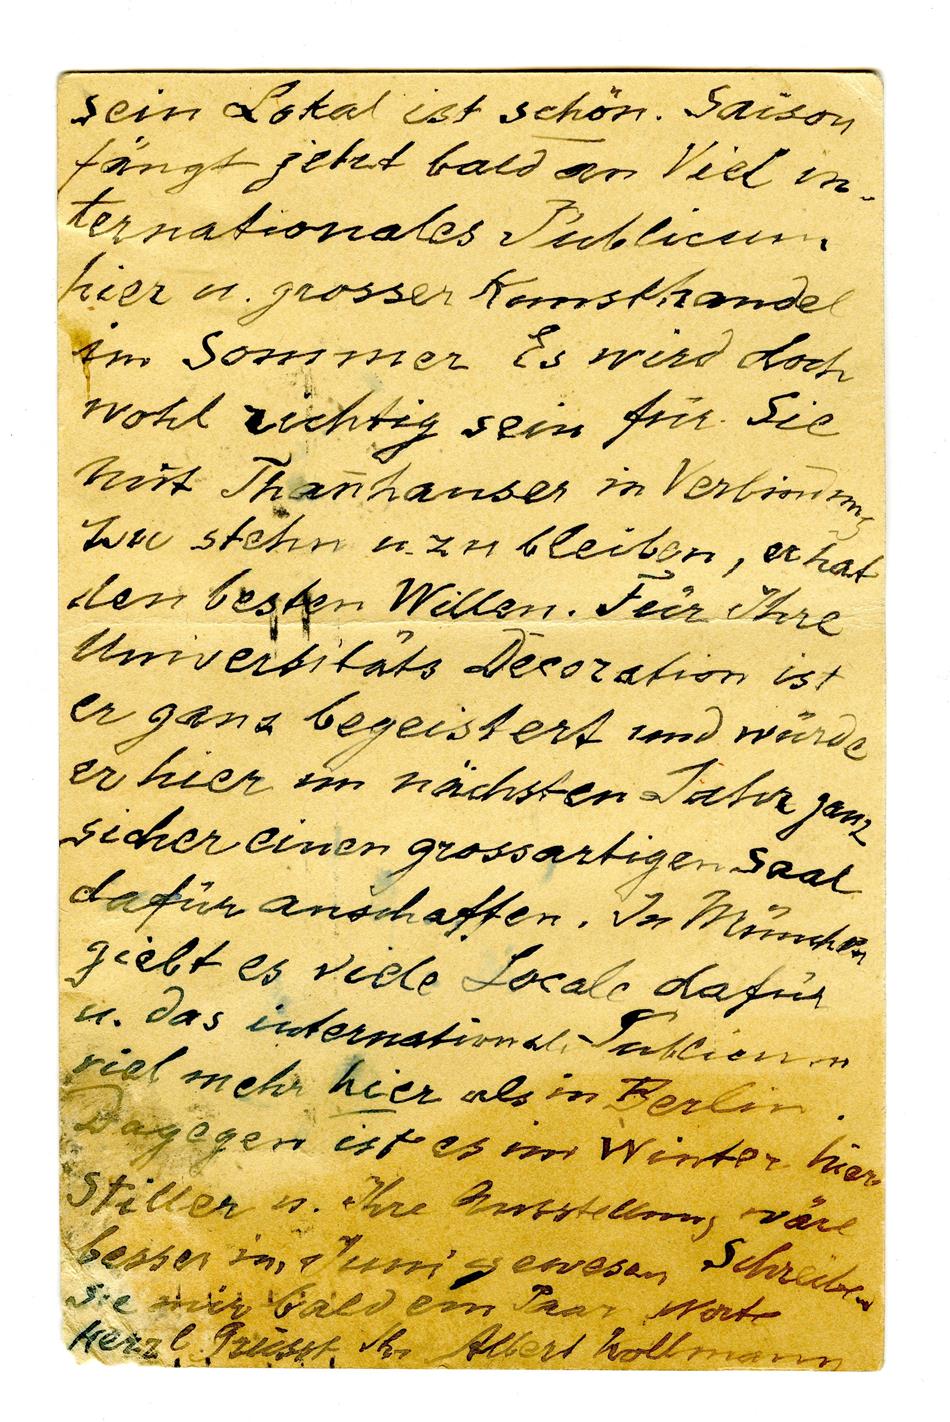 sein Lokal ist schön. Saison
fängt jetzt bald an Viel in-
ternationales Publicum
hier u. grosser Kunsthandel
im Sommer Es wird doch
wohl richtig sein für Sie
mit Thannhauser in Verbindung
zu stehn u. zu bleiben, er hat
den besten Willen. Für Ihre
Universitäts Decoration ist
er ganz begeistert und würde
er hier im nächsten Jahr ganz
sicher einen grossartigen Saal
dafür anschaffen. In München
giebt es viele Locale dafür
u. das internationale Publicum
viel mehr hier als in Berlin.
Dagegen ist es im Winter hier
Stiller u. Ihre Ausstellung wäre
besser im Juni gewesen Schreiben
Sie mir bald ein Paar Worte
Herzl Grüsst Ihr Albert Kollmann